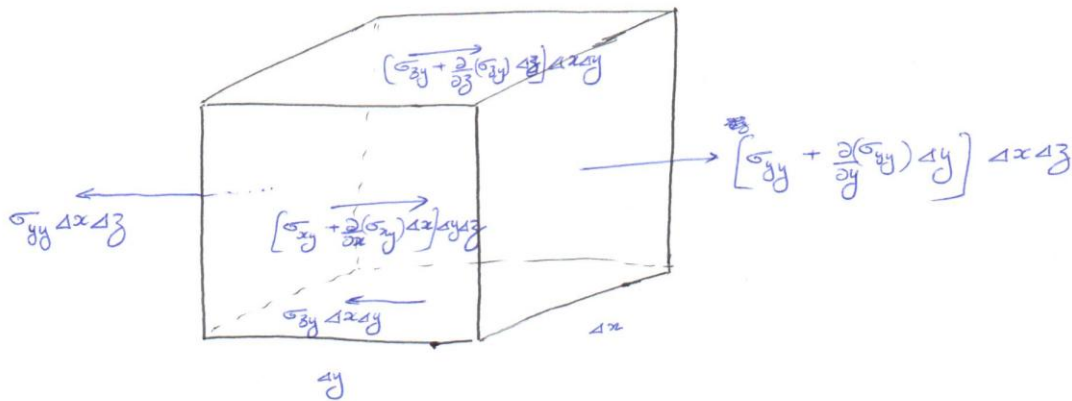 [σ_zy + ∂/∂z (σ_zy) Δz] Δx Δy
[σ_yy + ∂/∂y (σ_yy) Δy] Δx Δz
σ_yy Δx Δz
[σ_xy + ∂/∂x (σ_xy) Δx] Δy Δz
σ_zy Δx Δy
Δx
Δy